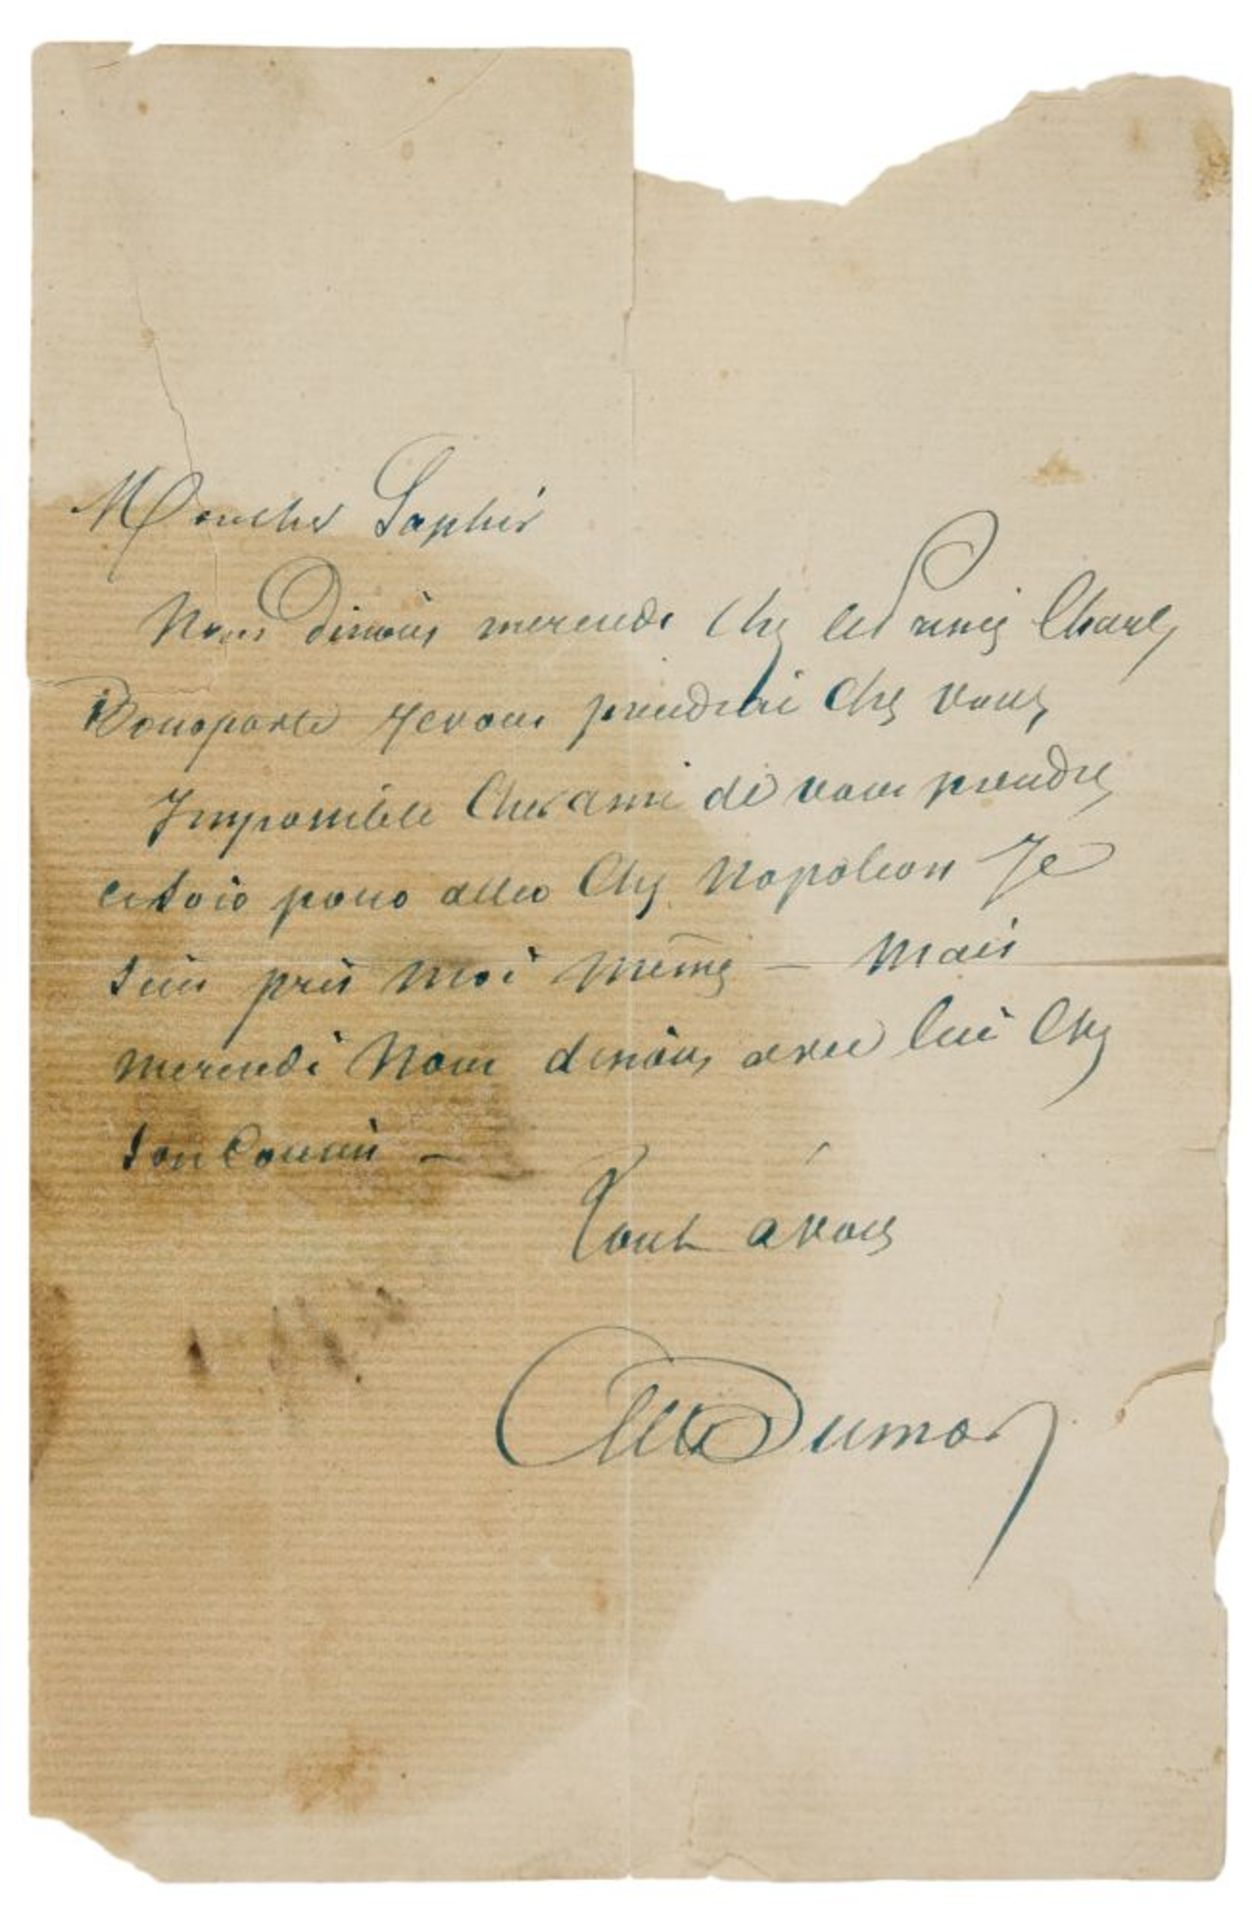 Mon cher Saphir
Nous dinons mercredi chez le Prince Charles
Bonaparte Je vous prendrai chez vous
Impossible cher ami de vous prendre
ce soir pour aller chez Napoleon Je
suis pris moi même — Mais
mercredi nous dinons avec lui chez
son cousin —
Tout à vous
Alex Dumas